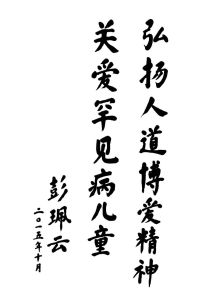 弘扬人道博爱精神
关爱罕见病儿童
彭珮云
二〇一五年十月